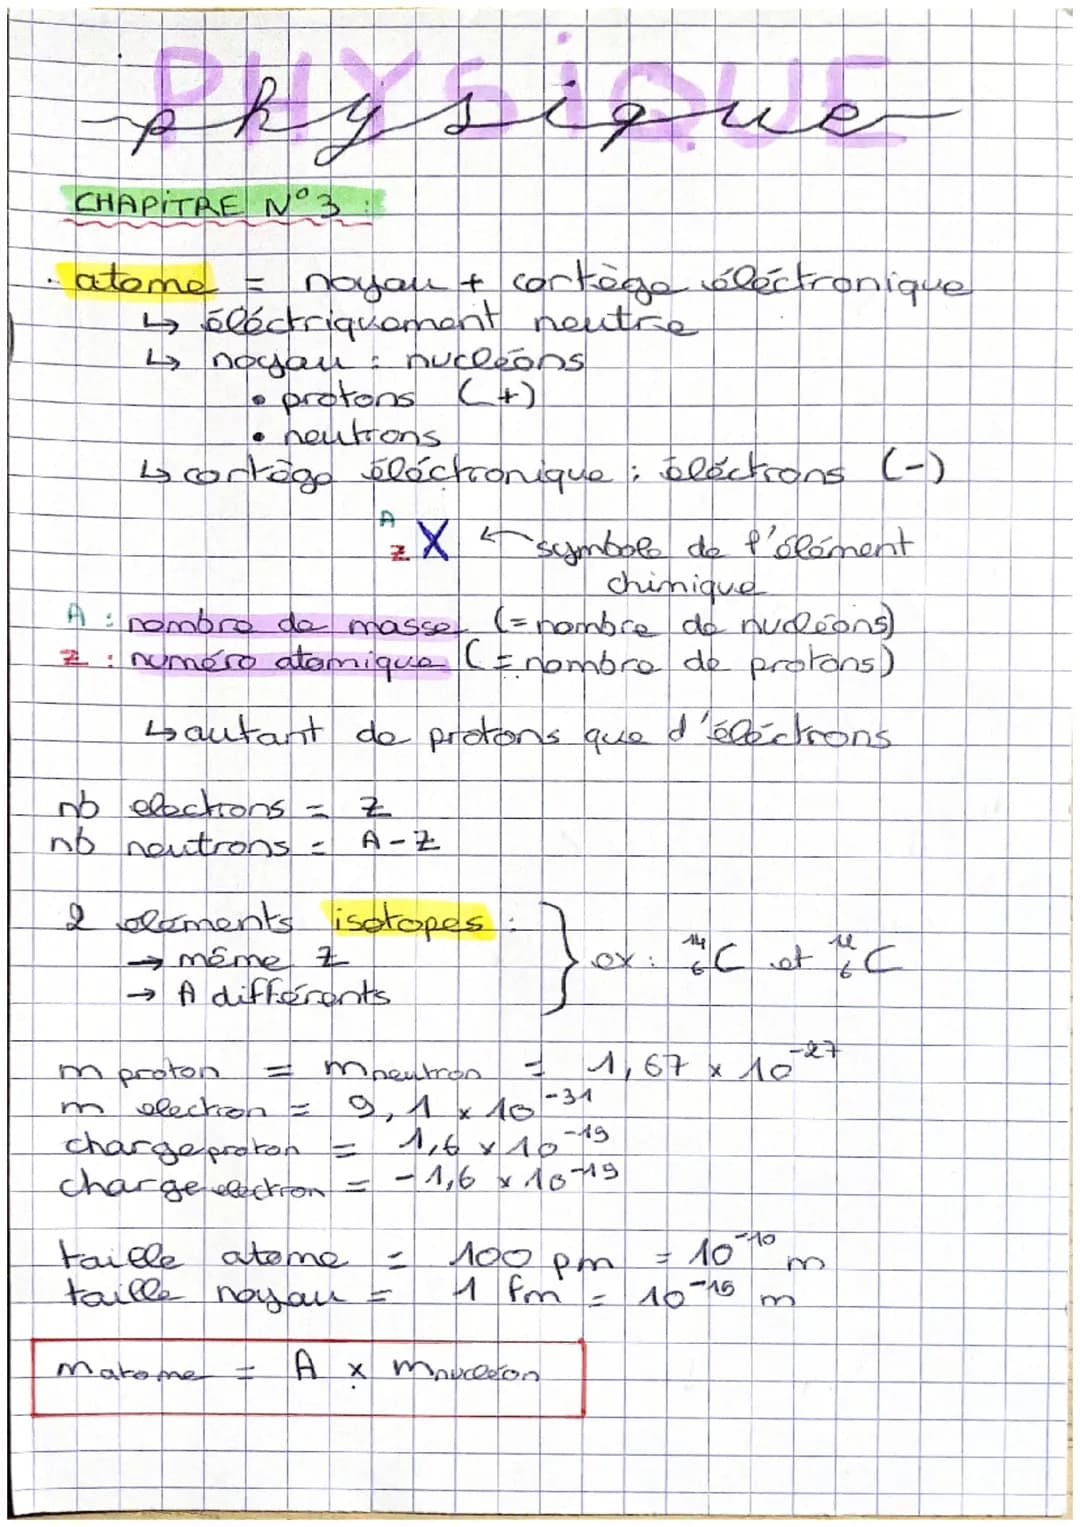 PHYSIQUE
physique
CHAPITRE N°3 :
. atome = noyau + cortège éléctronique
↳ éléctriquement neutre
↳ noyau : nucléons
• protons (+)
• neutrons
↳ cortège éléctronique : éléctrons (-)
A
Z X ← symbole de l'élément
chimique
A : nombre de masse (= nombre de nucléons)
Z : numéro atomique (= nombre de protons)
↳ autant de protons que d'éléctrons
nb electrons = Z
nb neutrons = A - Z
2 éléments isotopes :
→ même Z
→ A différents
} ex : ¹⁴₆C et ¹²₆C
m proton = m neutron = 1,67 × 10⁻²⁷
m electron = 9,1 × 10⁻³¹
charge proton = 1,6 × 10⁻¹⁹
charge electron = - 1,6 × 10⁻¹⁹
taille atome = 100 pm = 10⁻¹⁰ m
taille noyau = 1 fm = 10⁻¹⁵ m
m atome = A × m nucléon